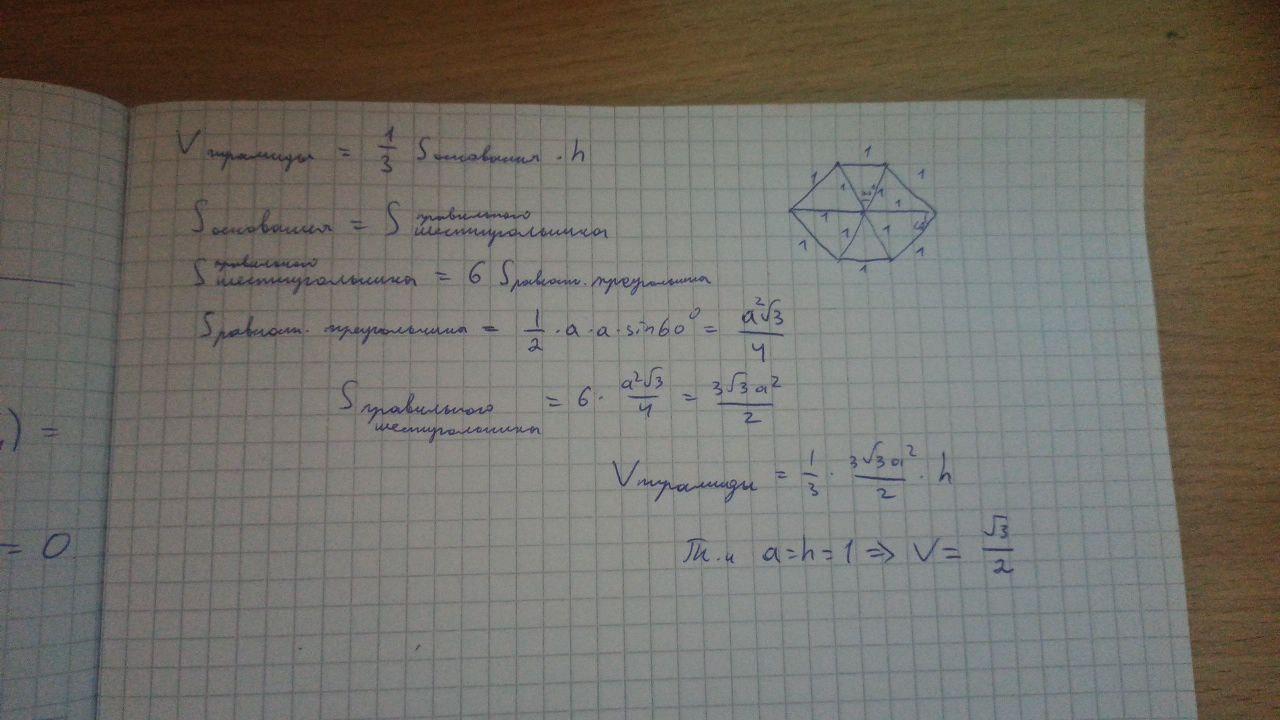 V пирамиды = 1/3 S основания · h
S основания = S правильного шестиугольника
S правильного шестиугольника = 6 S равност. треугольника
S равност. треугольника = 1/2 · a · a · sin60° = a²√3/4
S правильного шестиугольника = 6 · a²√3/4 = 3√3a²/2
V пирамиды = 1/3 · 3√3a²/2 · h
Т.к a=h=1 ⇒ V = √3/2
1
1 1
1 1
1 1
1 1
1 1
1
) =
= 0